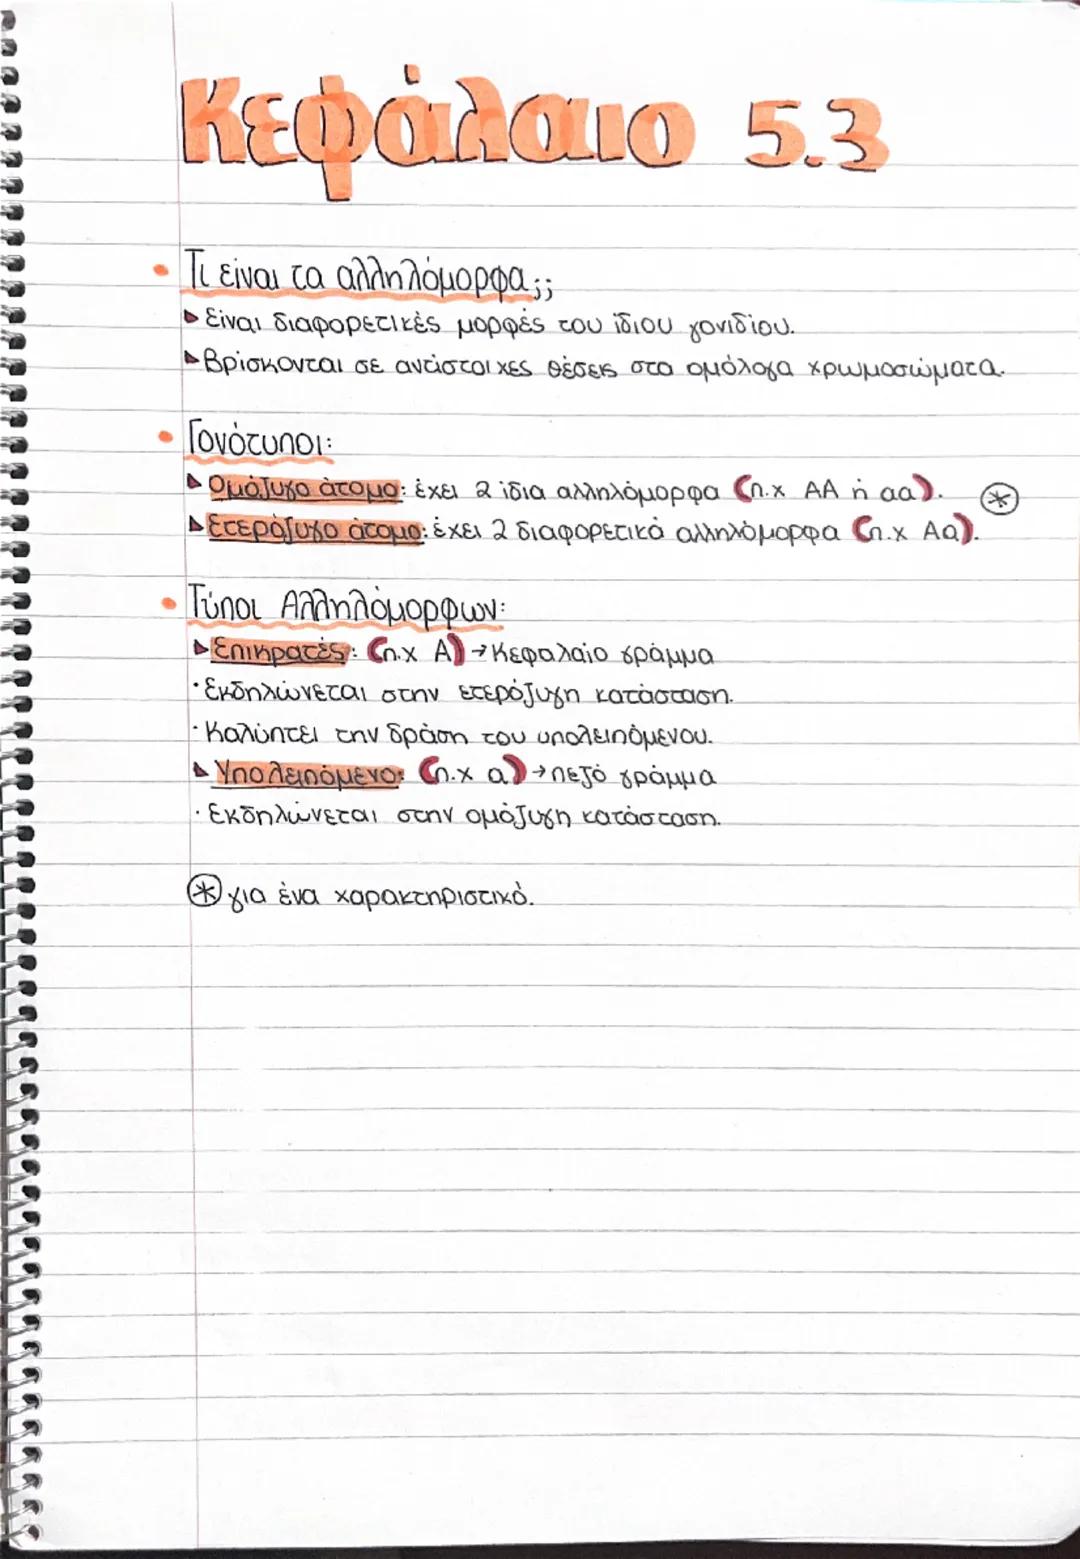 Κεφάλαιο 5.3
• Τι είναι τα αλληλόμορφα;;
▶ Είναι διαφορετικές μορφές του ίδιου γονιδίου.
▶ Βρίσκονται σε αντίστοιχες θέσεις στα ομόλογα χρωμοσώματα.
• Γονότυποι:
▶ Ομόζυγο άτομο: έχει 2 ίδια αλληλόμορφα (π.χ ΑΑ ή αα). *
▶ Ετερόζυγο άτομο: έχει 2 διαφορετικά αλληλόμορφα (π.χ Αα).
• Τύποι Αλληλόμορφων:
▶ Επικρατές: (π.χ Α) → Κεφαλαίο γράμμα
· Εκδηλώνεται στην ετερόζυγη κατάσταση.
· Καλύπτει την δράση του υπολειπόμενου.
▶ Υπολειπόμενο: (π.χ α) → πεζό γράμμα
· Εκδηλώνεται στην ομόζυγη κατάσταση.
* για ένα χαρακτηριστικό.